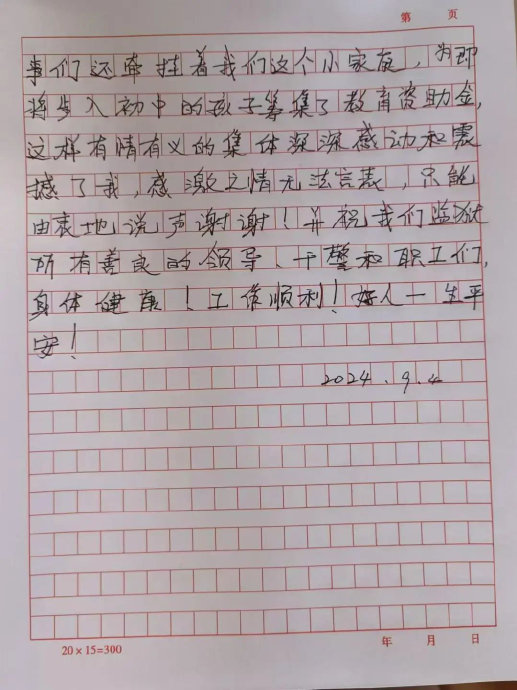 第 页
事们还牵挂着我们这个小家庭，为即
将步入初中的孩子筹集了教育资助金，
这样有情有义的集体深深感动和震
撼了我，感激之情无法言表，只能
由衷地说声谢谢！并祝我们监狱
所有善良的领导、干警和职工们，
身体健康！工作顺利！好人一生平
安！
2024.9.4
20×15=300 年 月 日